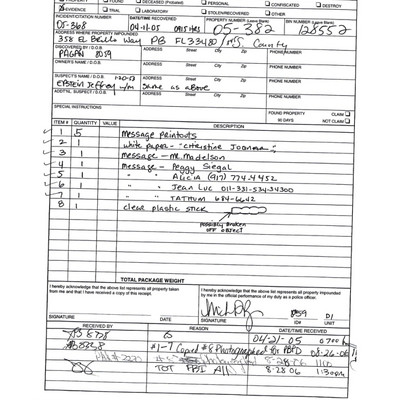 PROPERTY FOUND DECEASED (Probated) PERSONAL CONFISCATED DESTROY
EVIDENCE TRIAL LABORATORY STOLEN/RECOVERED OTHER
INCIDENT/CITATION NUMBER DATE/TIME RECOVERED PROPERTY NUMBER (Leave Blank) BIN NUMBER (Leave Blank)
05-368 04-11-05 0915 Hrs 05-382 128552
ADDRESS WHERE PROPERTY IMPOUNDED
358 El Brillo Way PB FL 33480 County
DISCOVERED BY / D.O.B. ADDRESS Street City Zip PHONE NUMBER
PAGAN 8059
OWNER'S NAME / D.O.B. ADDRESS Street City Zip PHONE NUMBER
SUSPECT'S NAME / D.O.B. 1-20-53 ADDRESS Street City Zip PHONE NUMBER
EPSTEIN Jeffrey w/m same as above
ADDT'L SUSPECT / D.O.B. ADDRESS Street City Zip PHONE NUMBER
SPECIAL INSTRUCTIONS FOUND PROPERTY CLAIM
90 DAYS NOT CLAIM
ITEM # QUANTITY VALUE DESCRIPTION
1 5 message printouts
2 1 white paper - "Christine
3 1 message - Mr. Madelson
4 1 message - Peggy Siegal
5 1 " " Alicia (917) 774-4452
6 1 " " Jean Luc 011-331-534-34300
7 1 " " TATHUM 684-6642
8 1 clear plastic stick
possibly broken
off object
TOTAL PACKAGE WEIGHT
I hereby acknowledge that the above list represents all property taken
from me and that I have received a copy of this receipt.
I hereby acknowledge that the above list represents all property impounded
by me in the official performance of my duty as a police officer.
SIGNATURE DATE SIGNATURE ID# UNIT
RECEIVED BY REASON DATE/TIME RECEIVED
04-21-05 0700
#1-7 Copied #8 Photographed 08-26-06
8-28-06
TOT FBI All 8-28-06 1:30pm